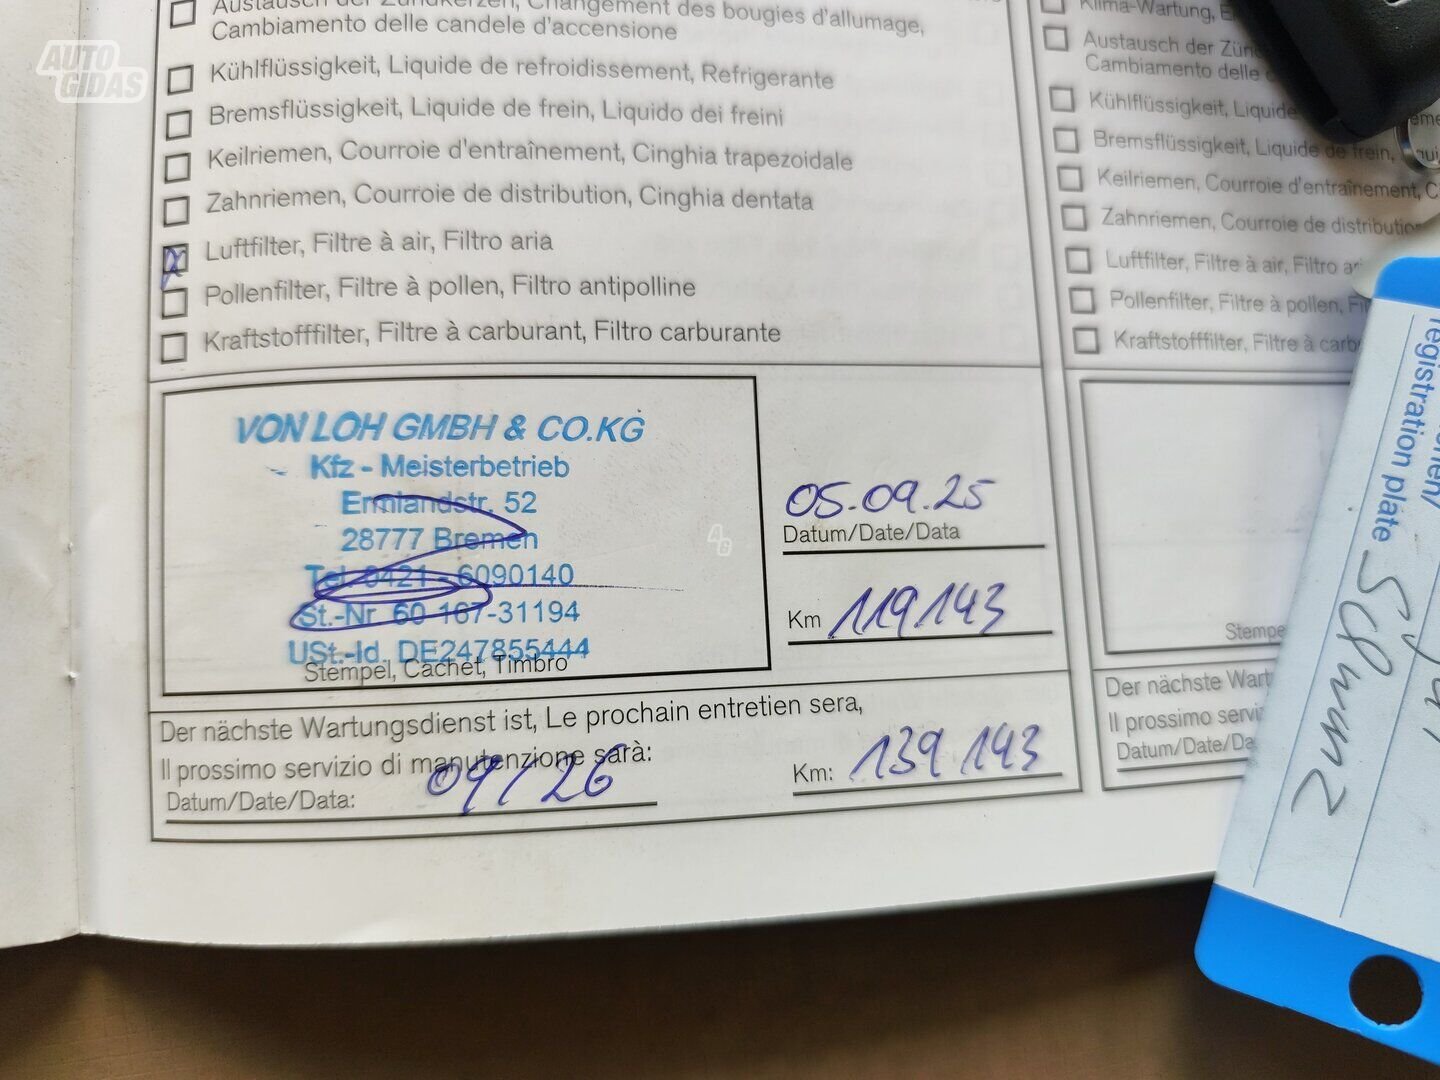 AUTO
GIDAS
Austausch der Zündkerzen, Changement des bougies d'allumage,
Cambiamento delle candele d'accensione
Kühlflüssigkeit, Liquide de refroidissement, Refrigerante
Bremsflüssigkeit, Liquide de frein, Liquido dei freini
Keilriemen, Courroie d'entraînement, Cinghia trapezoidale
Zahnriemen, Courroie de distribution, Cinghia dentata
Luftfilter, Filtre à air, Filtro aria
Pollenfilter, Filtre à pollen, Filtro antipolline
Kraftstofffilter, Filtre à carburant, Filtro carburante
VON LOH GMBH & CO.KG
Kfz - Meisterbetrieb
Ermlandstr. 52
28777 Bremen
Tel. 0421 - 6090140
St.-Nr. 60 167-31194
USt.-Id. DE247855444
Stempel, Cachet, Timbro
05.09.25
Datum/Date/Data
Km 119 143
Der nächste Wartungsdienst ist, Le prochain entretien sera,
Il prossimo servizio di manutenzione sarà:
Datum/Date/Data: 09/26
Km: 139 143
Klima-Wartung,
Austausch der
Cambiamento delle
Kühlflüssigkeit, Liquide
Bremsflüssigkeit, Liquide de frein,
Keilriemen, Courroie d'entraînement,
Zahnriemen, Courroie de
Luftfilter, Filtre à air, Filtro
Pollenfilter, Filtre à pollen,
Kraftstofffilter, Filtre à
Der nächste
Il prossimo
Datum/Date/
registration plate